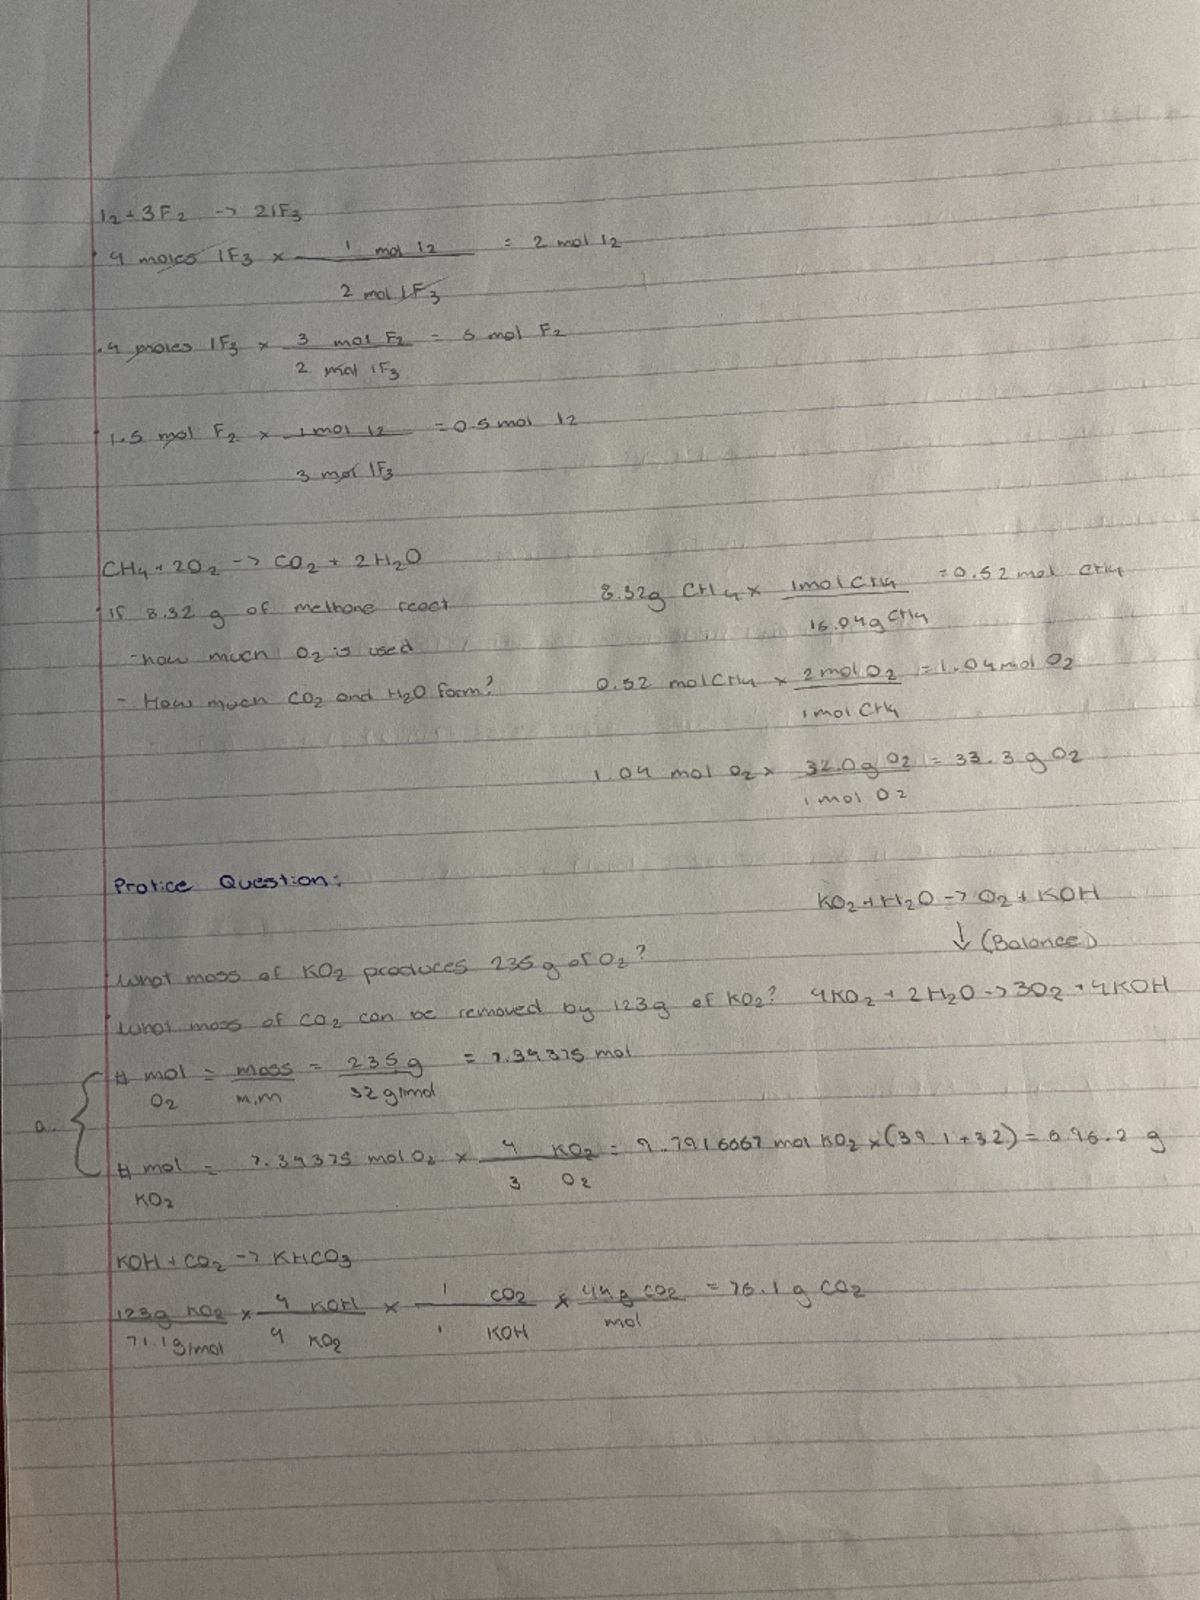 I2 + 3F2 -> 2IF3
4 moles IF3 × 1 mol I2 / 2 mol IF3 = 2 mol I2
4 moles IF3 × 3 mol F2 / 2 mol IF3 = 6 mol F2
1.5 mol F2 × 1 mol I2 / 3 mol IF3 = 0.5 mol I2
CH4 + 2O2 -> CO2 + 2H2O
If 8.32 g of methane react
- how much O2 is used
- How much CO2 and H2O form?
8.32g CH4 × 1 mol CH4 / 16.04g CH4 = 0.52 mol CH4
0.52 mol CH4 × 2 mol O2 / 1 mol CH4 = 1.04 mol O2
1.04 mol O2 × 32.0g O2 / 1 mol O2 = 33.3 g O2
Pratice Question:
KO2 + H2O -> O2 + KOH
↓ (Balance)
What mass of KO2 produces 235 g of O2?
What mass of CO2 can be removed by 123g of KO2? 4KO2 + 2H2O -> 3O2 + 4KOH
a. # mol O2 = mass / m.m = 235 g / 32 g/mol = 7.34375 mol
# mol KO2 = 7.34375 mol O2 × 4 KO2 / 3 O2 = 9.7916667 mol KO2 × (39.1+32) = 696.2 g
KOH + CO2 -> KHCO3
123g KO2 / 71.1g/mol × 4 KOH / 4 KO2 × 1 CO2 / 1 KOH × 44g CO2 / mol = 76.1 g CO2